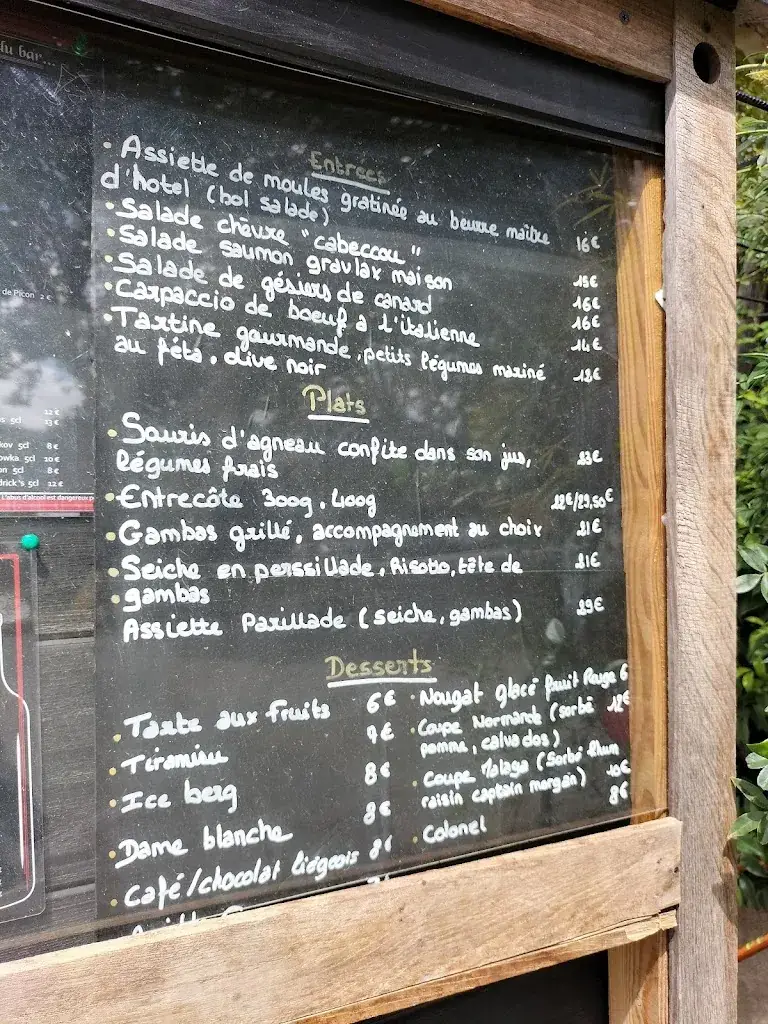 du bar...
de Picon 2 €
12 €
s 5cl 13 €
kov 5cl 8 €
owka 5cl 10 €
on 5cl 8 €
drick's 5cl 12 €
L'abus d'alcool est dangereux p
Entrees
• Assiette de moules gratinée au beurre maître
d'hotel (bol salade) 16€
• Salade chèvre "cabeccou" 15€
• Salade saumon gravlax maison 16€
• Salade de gésiers de canard 16€
• Carpaccio de boeuf a l'italienne 14€
• Tartine gourmande, petits légumes mariné
au féta, olive noir 12€
Plats
• Souris d'agneau confite dans son jus, 23€
légumes frais
• Entrecôte 300g, 400g 22€/29,50€
• Gambas grillé, accompagnement au choix 21€
• Seiche en perssillade, Risotto, tête de 21€
• gambas
Assiette Parillade (seiche, gambas) 29€
Desserts
• Tarte aux fruits 6€
• Tiramisu 7€
• Ice berg 8€
• Dame blanche 8€
• Café/chocolat liégeois 8€
• Nougat glacé fruit Rouge 6
• Coupe Normande (sorbé 12€
pomme, calvados)
• Coupe Malaga (Sorbé Rhum
raisin captain morgan) 10€
• Colonel 8€